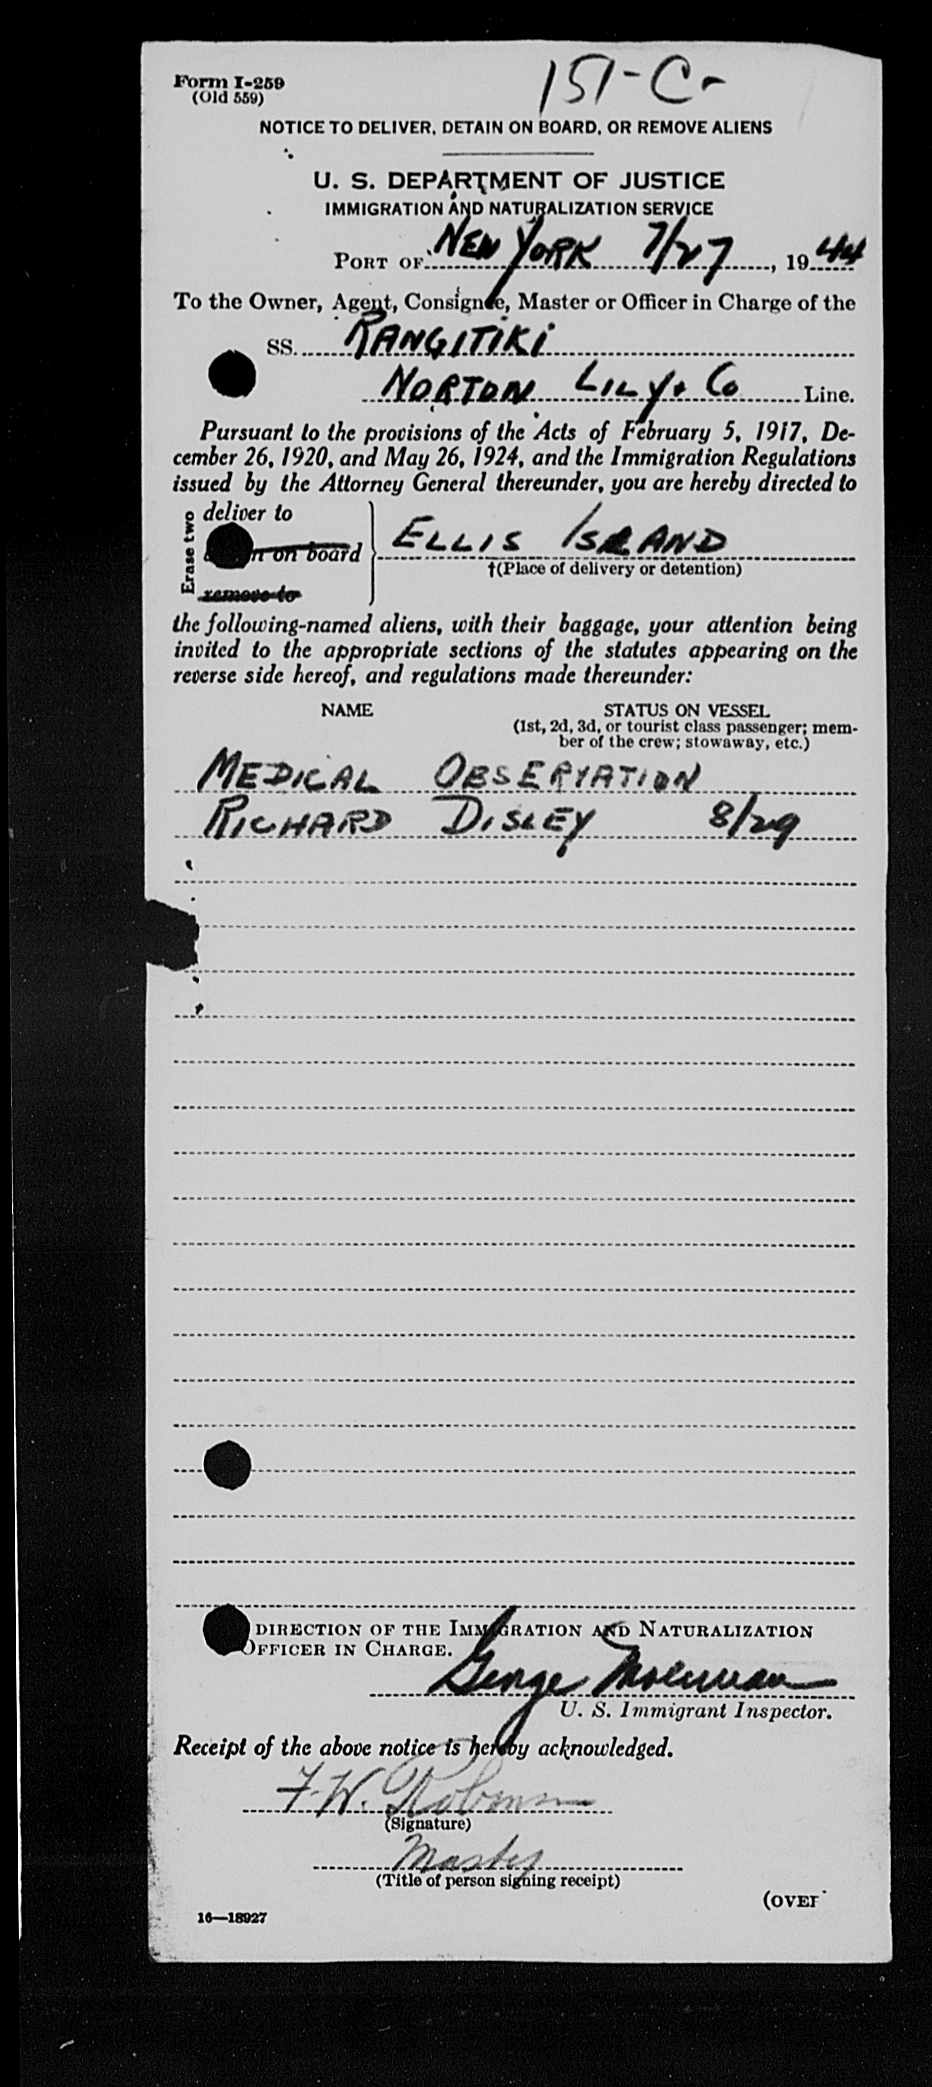 Form I-259
(Old 559)
151-C-
NOTICE TO DELIVER, DETAIN ON BOARD, OR REMOVE ALIENS
U. S. DEPARTMENT OF JUSTICE
IMMIGRATION AND NATURALIZATION SERVICE
PORT OF NEW YORK 7/27, 1944
To the Owner, Agent, Consignee, Master or Officer in Charge of the
SS. RANGITIKI
NORTON LILY & CO Line.
Pursuant to the provisions of the Acts of February 5, 1917, De-
cember 26, 1920, and May 26, 1924, and the Immigration Regulations
issued by the Attorney General thereunder, you are hereby directed to
Erase two
deliver to
n on board
remove to
ELLIS ISLAND
†(Place of delivery or detention)
the following-named aliens, with their baggage, your attention being
invited to the appropriate sections of the statutes appearing on the
reverse side hereof, and regulations made thereunder:
NAME STATUS ON VESSEL
(1st, 2d, 3d, or tourist class passenger; mem-
ber of the crew; stowaway, etc.)
MEDICAL OBSERVATION
RICHARD DISLEY 8/29
DIRECTION OF THE IMMIGRATION AND NATURALIZATION
OFFICER IN CHARGE.
George
U. S. Immigrant Inspector.
Receipt of the above notice is hereby acknowledged.
F. W. Robinson
(Signature)
Master
(Title of person signing receipt)
(OVER
16—18927